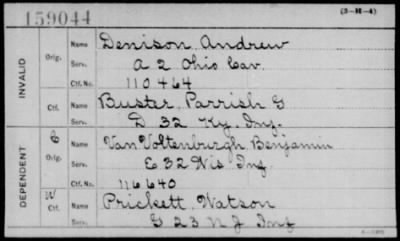 159044
(3-H-4)
INVALID
Orig.
Name Denison Andrew
Serv. A 2 Ohio Cav.
Ctf. No. 110464
Ctf.
Name Buster, Parrish G
Serv. D 32 Ky. Inf.
DEPENDENT
C
Orig.
Name Van Voltenburgh Benjamin
Serv. E 32 Wis Inf
Ctf. No. 116640
W
Ctf.
Name Prickett Watson
Serv. G 23 N J Inf